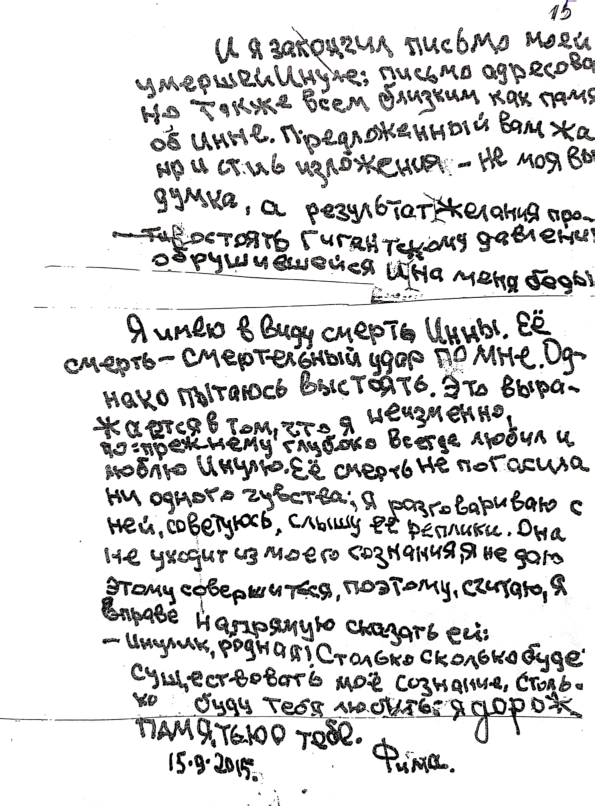 15
И я закончил письмо моей
умершей Инуле; письмо адресова
но также всем близким как памя
об Инне. Предложенный вам жа
нр и стиль изложения - не моя вы
думка, а результат желания про-
тивостоять гигантскому давлени
обрушившейся на меня беды
Я имею в виду смерть Инны. Её
смерть - смертельный удар по мне. Од-
нако пытаюсь выстоять. Это выра-
жается в том, что я неизменно,
по-прежнему глубоко всегда любил и
люблю Инулю. Её смерть не погасила
ни одного чувства; я разговариваю с
ней, советуюсь, слышу её реплики. Она
не уходит из моего сознания, я не даю
этому совершиться, поэтому, считаю, я
вправе напрямую сказать ей:
- Инулик, родная! Столько сколько буде
существовать моё сознание, столь-
ко буду тебя любить: я дорож
памятью о тебе.
15.9.2015. Фима.